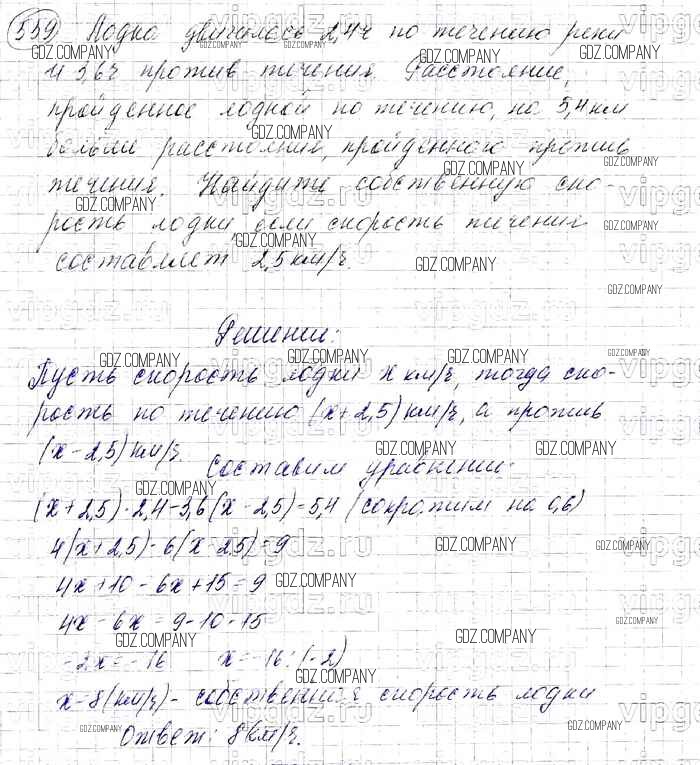 559 Лодка двигалась 2,4ч по течению реки
и 3,6ч против течения. Расстояние,
пройденное лодкой по течению, на 5,4км
больше расстояния, пройденного против
течения. Найдите собственную ско-
рость лодки, если скорость течения
составляет 2,5км/ч.
Решение:
Пусть скорость лодки x км/ч, тогда ско-
рость по течению (x+2,5)км/ч, а против
(x-2,5)км/ч.
Составим уравнение:
(x+2,5)·2,4-3,6(x-2,5)=5,4 (сократим на 0,6)
4(x+2,5)-6(x-2,5)=9
4x+10-6x+15=9
4x-6x=9-10-15
-2x=-16 x=-16:(-2)
x=8(км/ч)- собственная скорость лодки
Ответ: 8км/ч.